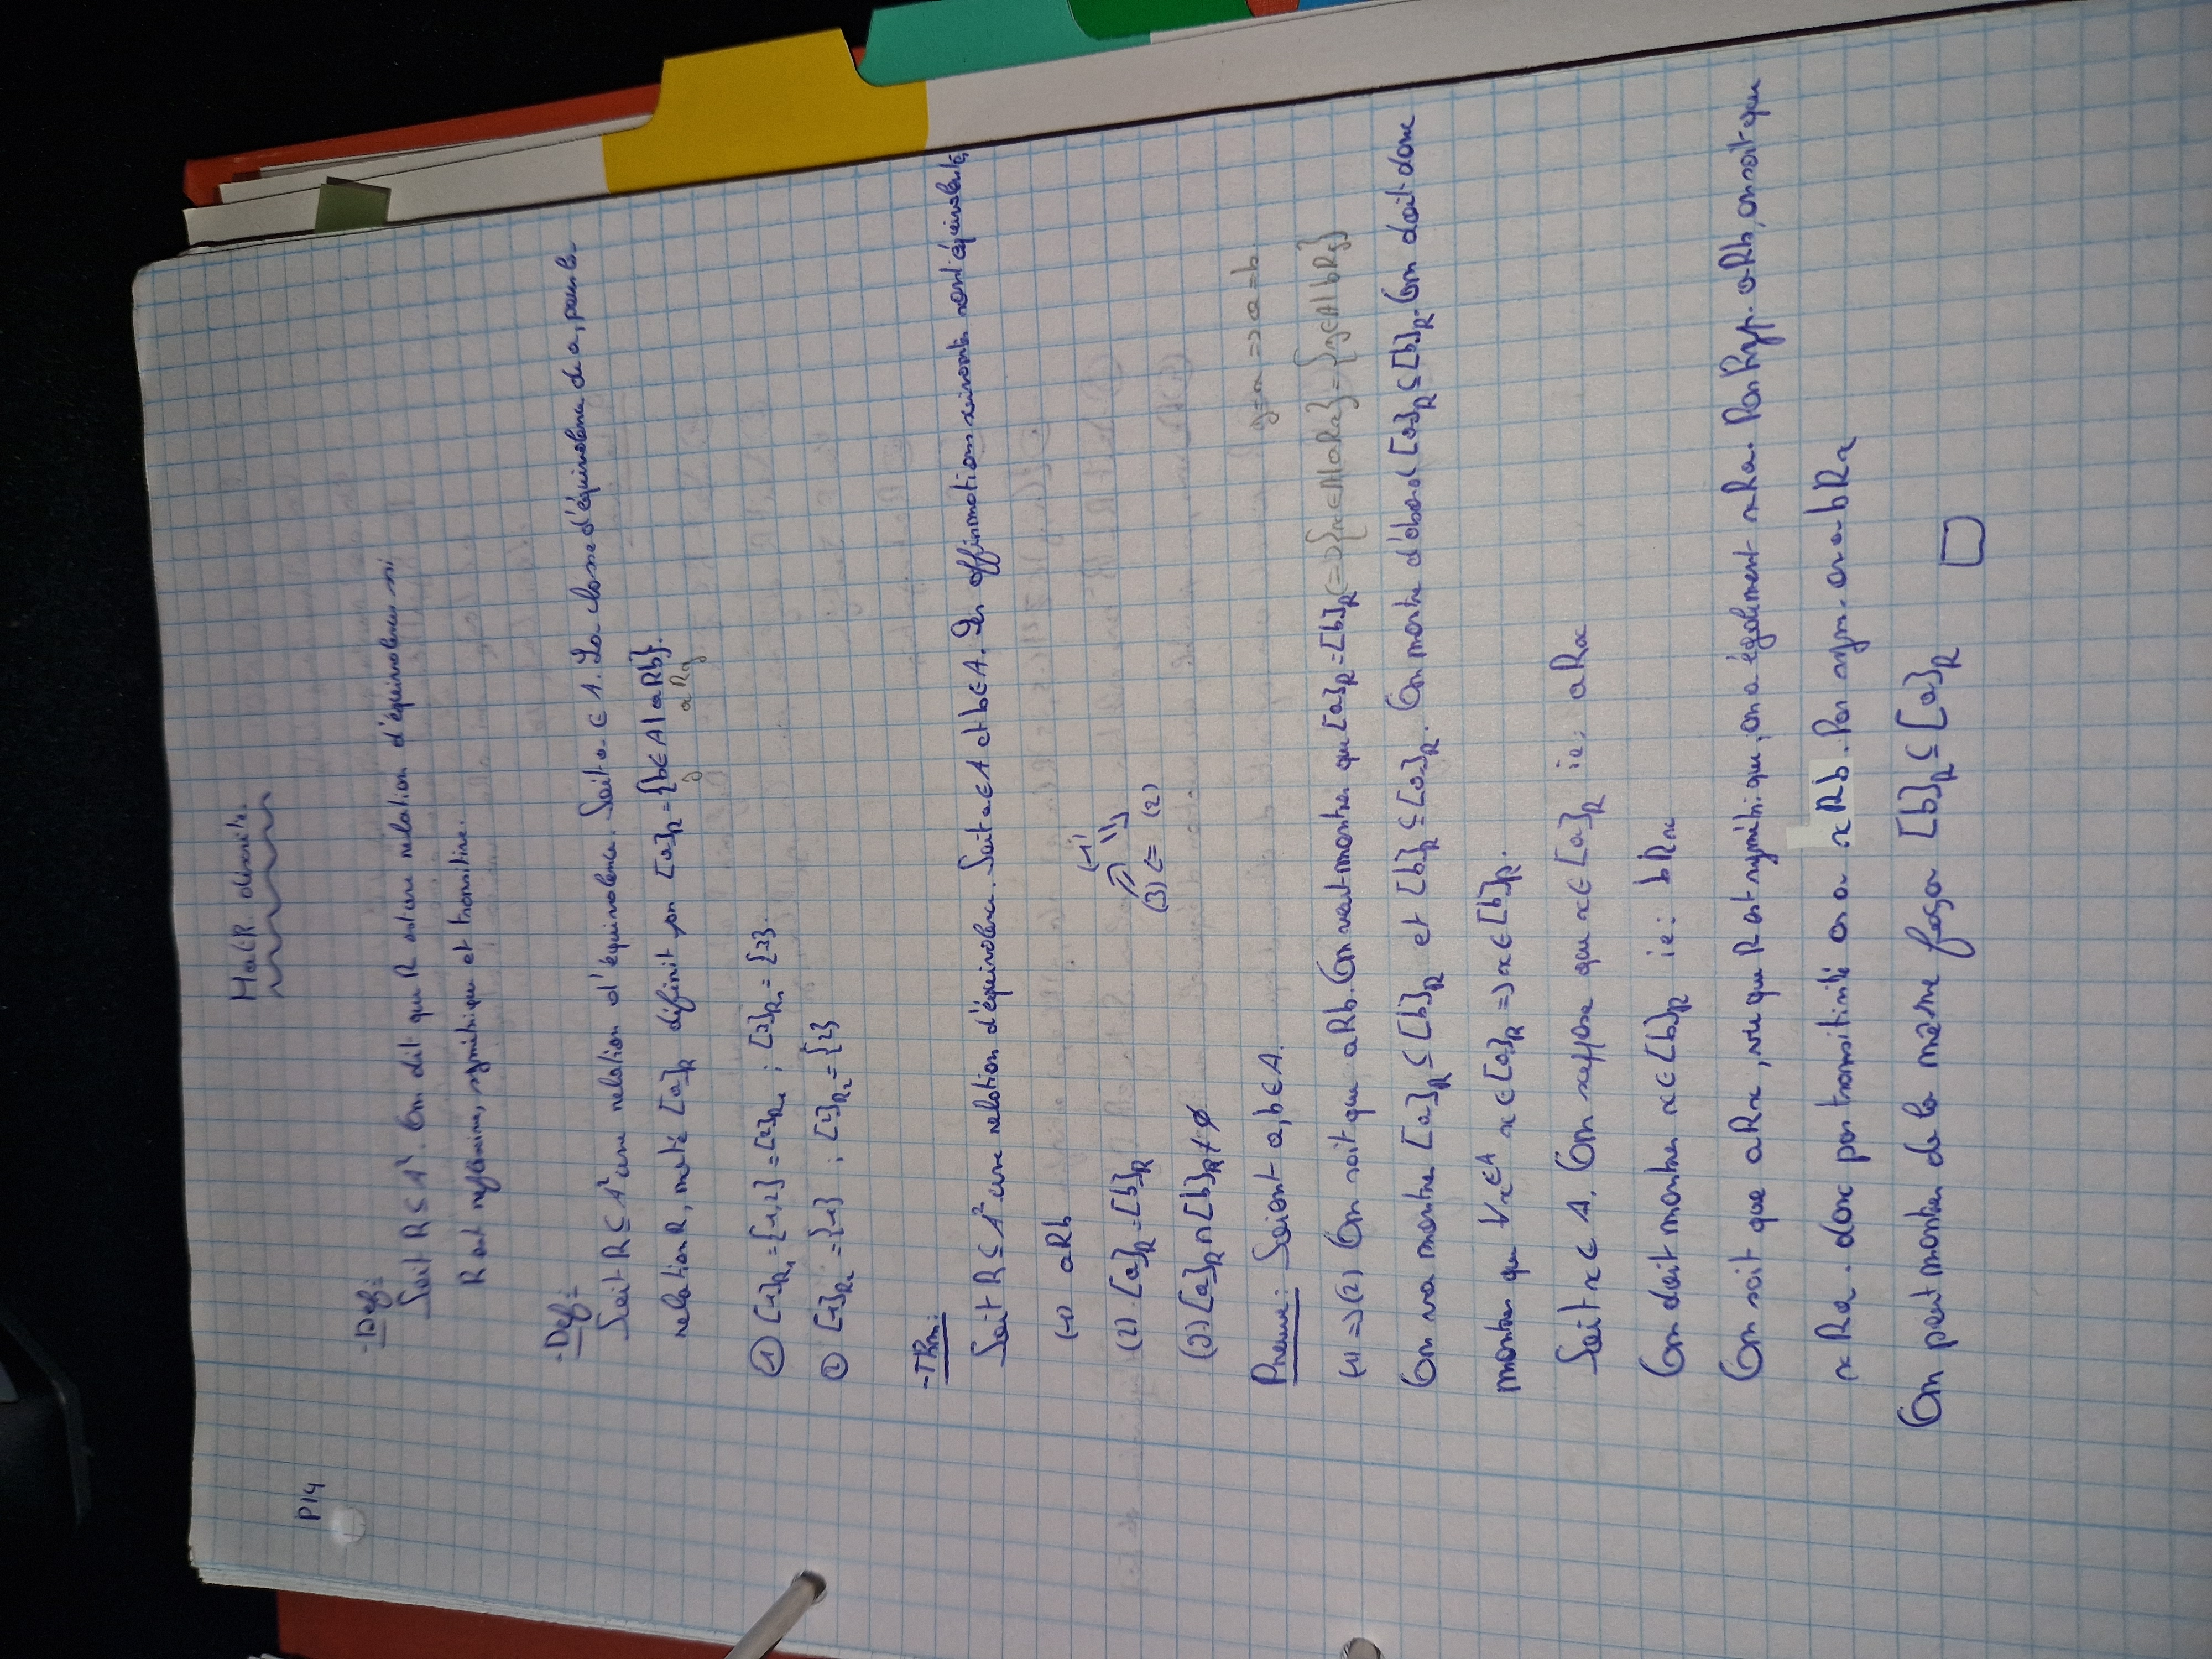 Math discrète.
P14
-Def:
Soit R ⊆ A². On dit que R est une relation d'équivalence si
R est reflexive, symétrique et transitive.
-Def:
Soit R ⊆ A² une relation d'équivalence. Soit a ∈ A. La classe d'équivalence de a, pour la
relation R, noté [a]R définit par [a]R = {b∈A | aRb}.
y aRy
① [1]R₁ = {1,2} = [2]R₁ ; [3]R₁ = {3}.
② [1]R₂ = {1} ; [2]R₂ = {2}
-Thm:
Soit R ⊆ A² une relation d'équivalence. Soit a ∈ A et b ∈ A. Les affirmations suivantes sont équivalentes
(1) aRb
(2) [a]R = [b]R
(3) [a]R ∩ [b]R ≠ ∅
(1)
⇗ ⇘
(3) ⇐ (2)
Preuve: Soient a, b ∈ A.
y=x => a=b
(1) => (2) On sait que aRb. On veut montrer que [a]R = [b]R (=>{x∈A|aRx} = {y∈A|bRy}
On va montrer [a]R ⊆ [b]R et [b]R ⊆ [a]R. On montre d'abord [a]R ⊆ [b]R. On doit donc
montrer que ∀x∈A x ∈ [a]R => x ∈ [b]R.
Soit x ∈ A. On suppose que x ∈ [a]R ie: aRx
On doit montrer x ∈ [b]R ie: bRx
On sait que aRx, vu que R est symétrique, on a également xRa. Par hyp. aRb, on sait que
xRa. donc par transitivité on a xRb. Par sym. on a bRx
On peut montrer de la même façon [b]R ⊆ [a]R